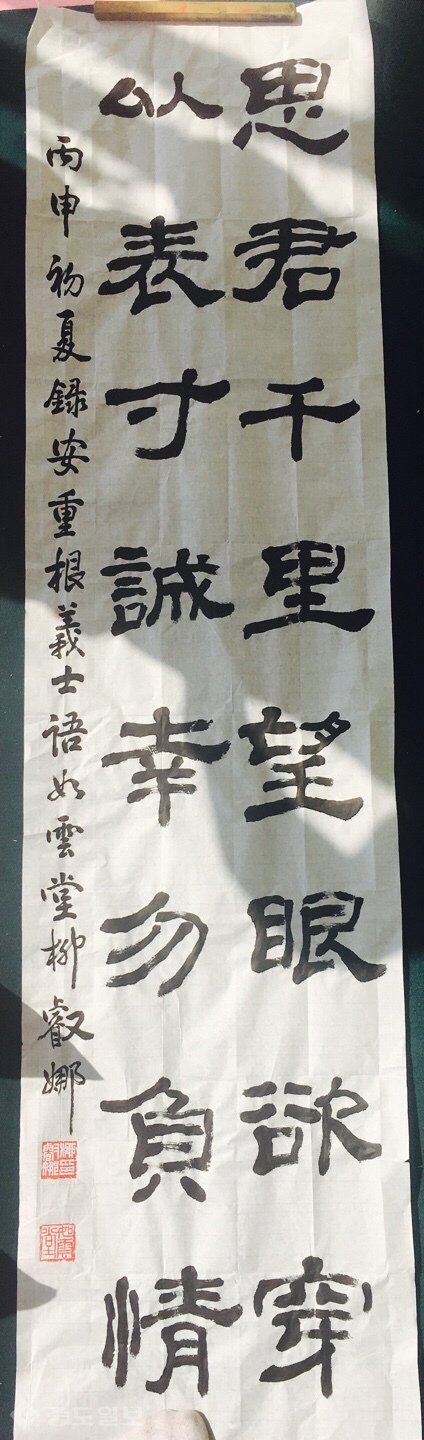 思君千里望眼欲穿
以表寸誠幸勿負情
丙申初夏録安重根義士語如雲堂柳叡娜
중도일보